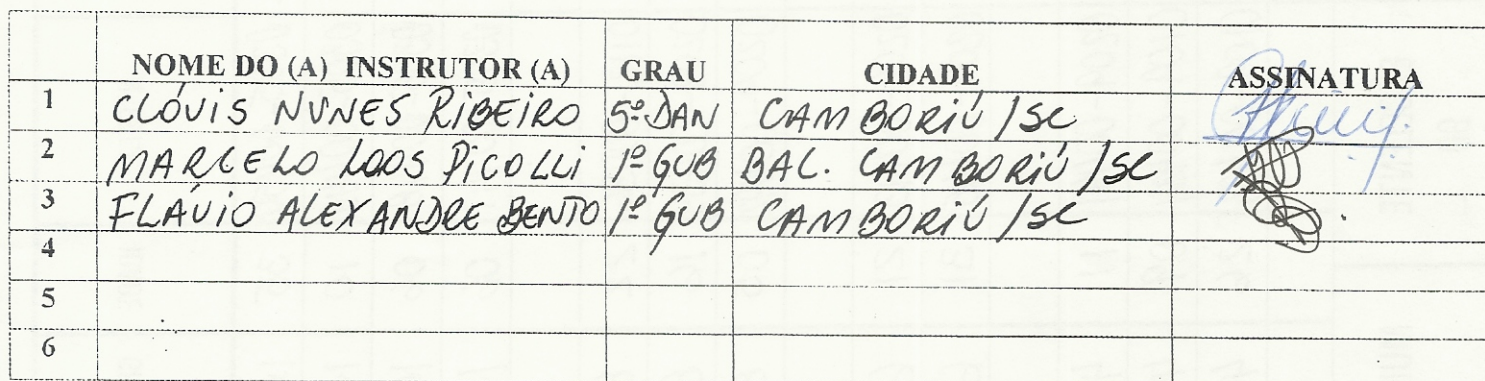 NOME DO (A) INSTRUTOR (A) GRAU CIDADE ASSINATURA
1 CLÓVIS NUNES RIBEIRO 5º DAN CAMBORIÚ / SC
2 MARCELO LOOS PICOLLI 1º GUB BAL. CAMBORIÚ / SC
3 FLÁVIO ALEXANDRE BENTO 1º GUB CAMBORIÚ / SC
4
5
6